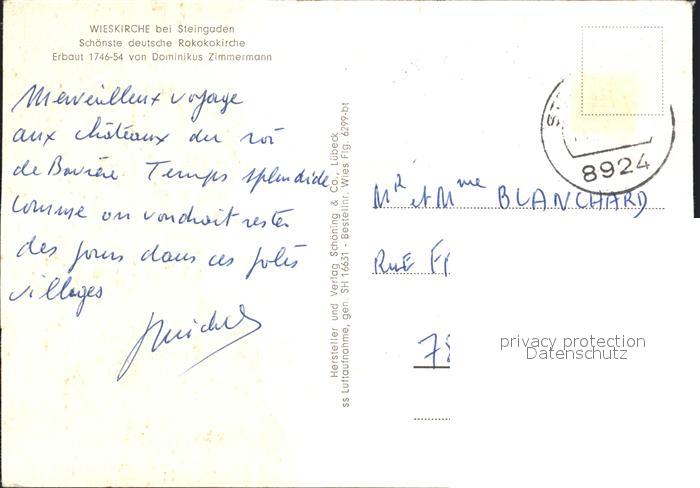 WIESKIRCHE bei Steingaden
Schönste deutsche Rokokokirche
Erbaut 1746-54 von Dominikus Zimmermann
Merveilleux voyage
aux châteaux du roi
de Bavière Temps splendide
comme on voudrait rester
des jours dans ces jolis
villages
Hersteller und Verlag Schöning & Co., Lübeck
ss Luftaufnahme, gen. SH 16631 - Bestellnr. Wies Flg. 6299-bt
8924
Mr et Mme BLANCHARD
RUE
privacy protection
Datenschutz